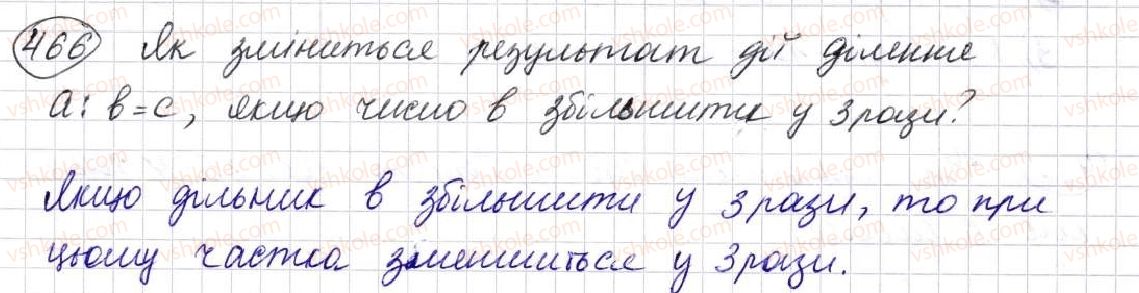 466 Як зміниться результат дії ділення
a : b = c, якщо число b збільшити у 3 рази?
Якщо дільник b збільшити у 3 рази, то при
цьому частка зменшиться у 3 рази.